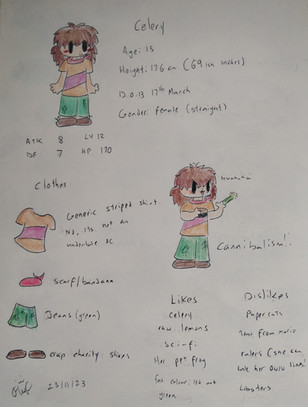 Celery
Age: 15
Height: 176 cm (69 in inches)
D.O.B 17th March
Gender: female (straight)
ATK 8 LV 12
DF 7 HP 120
Clothes
Generic striped shirt.
No, its not an
undertale oc
Cannibalism!
Scarf/bandana
Jeans (green)
crap charity shoes
Likes
Celery
raw lemons
Sci-fi
Her pet frog
fav colour: its not
green
Dislikes
Papercuts
rulers (she can
Lobsters
23/11/23